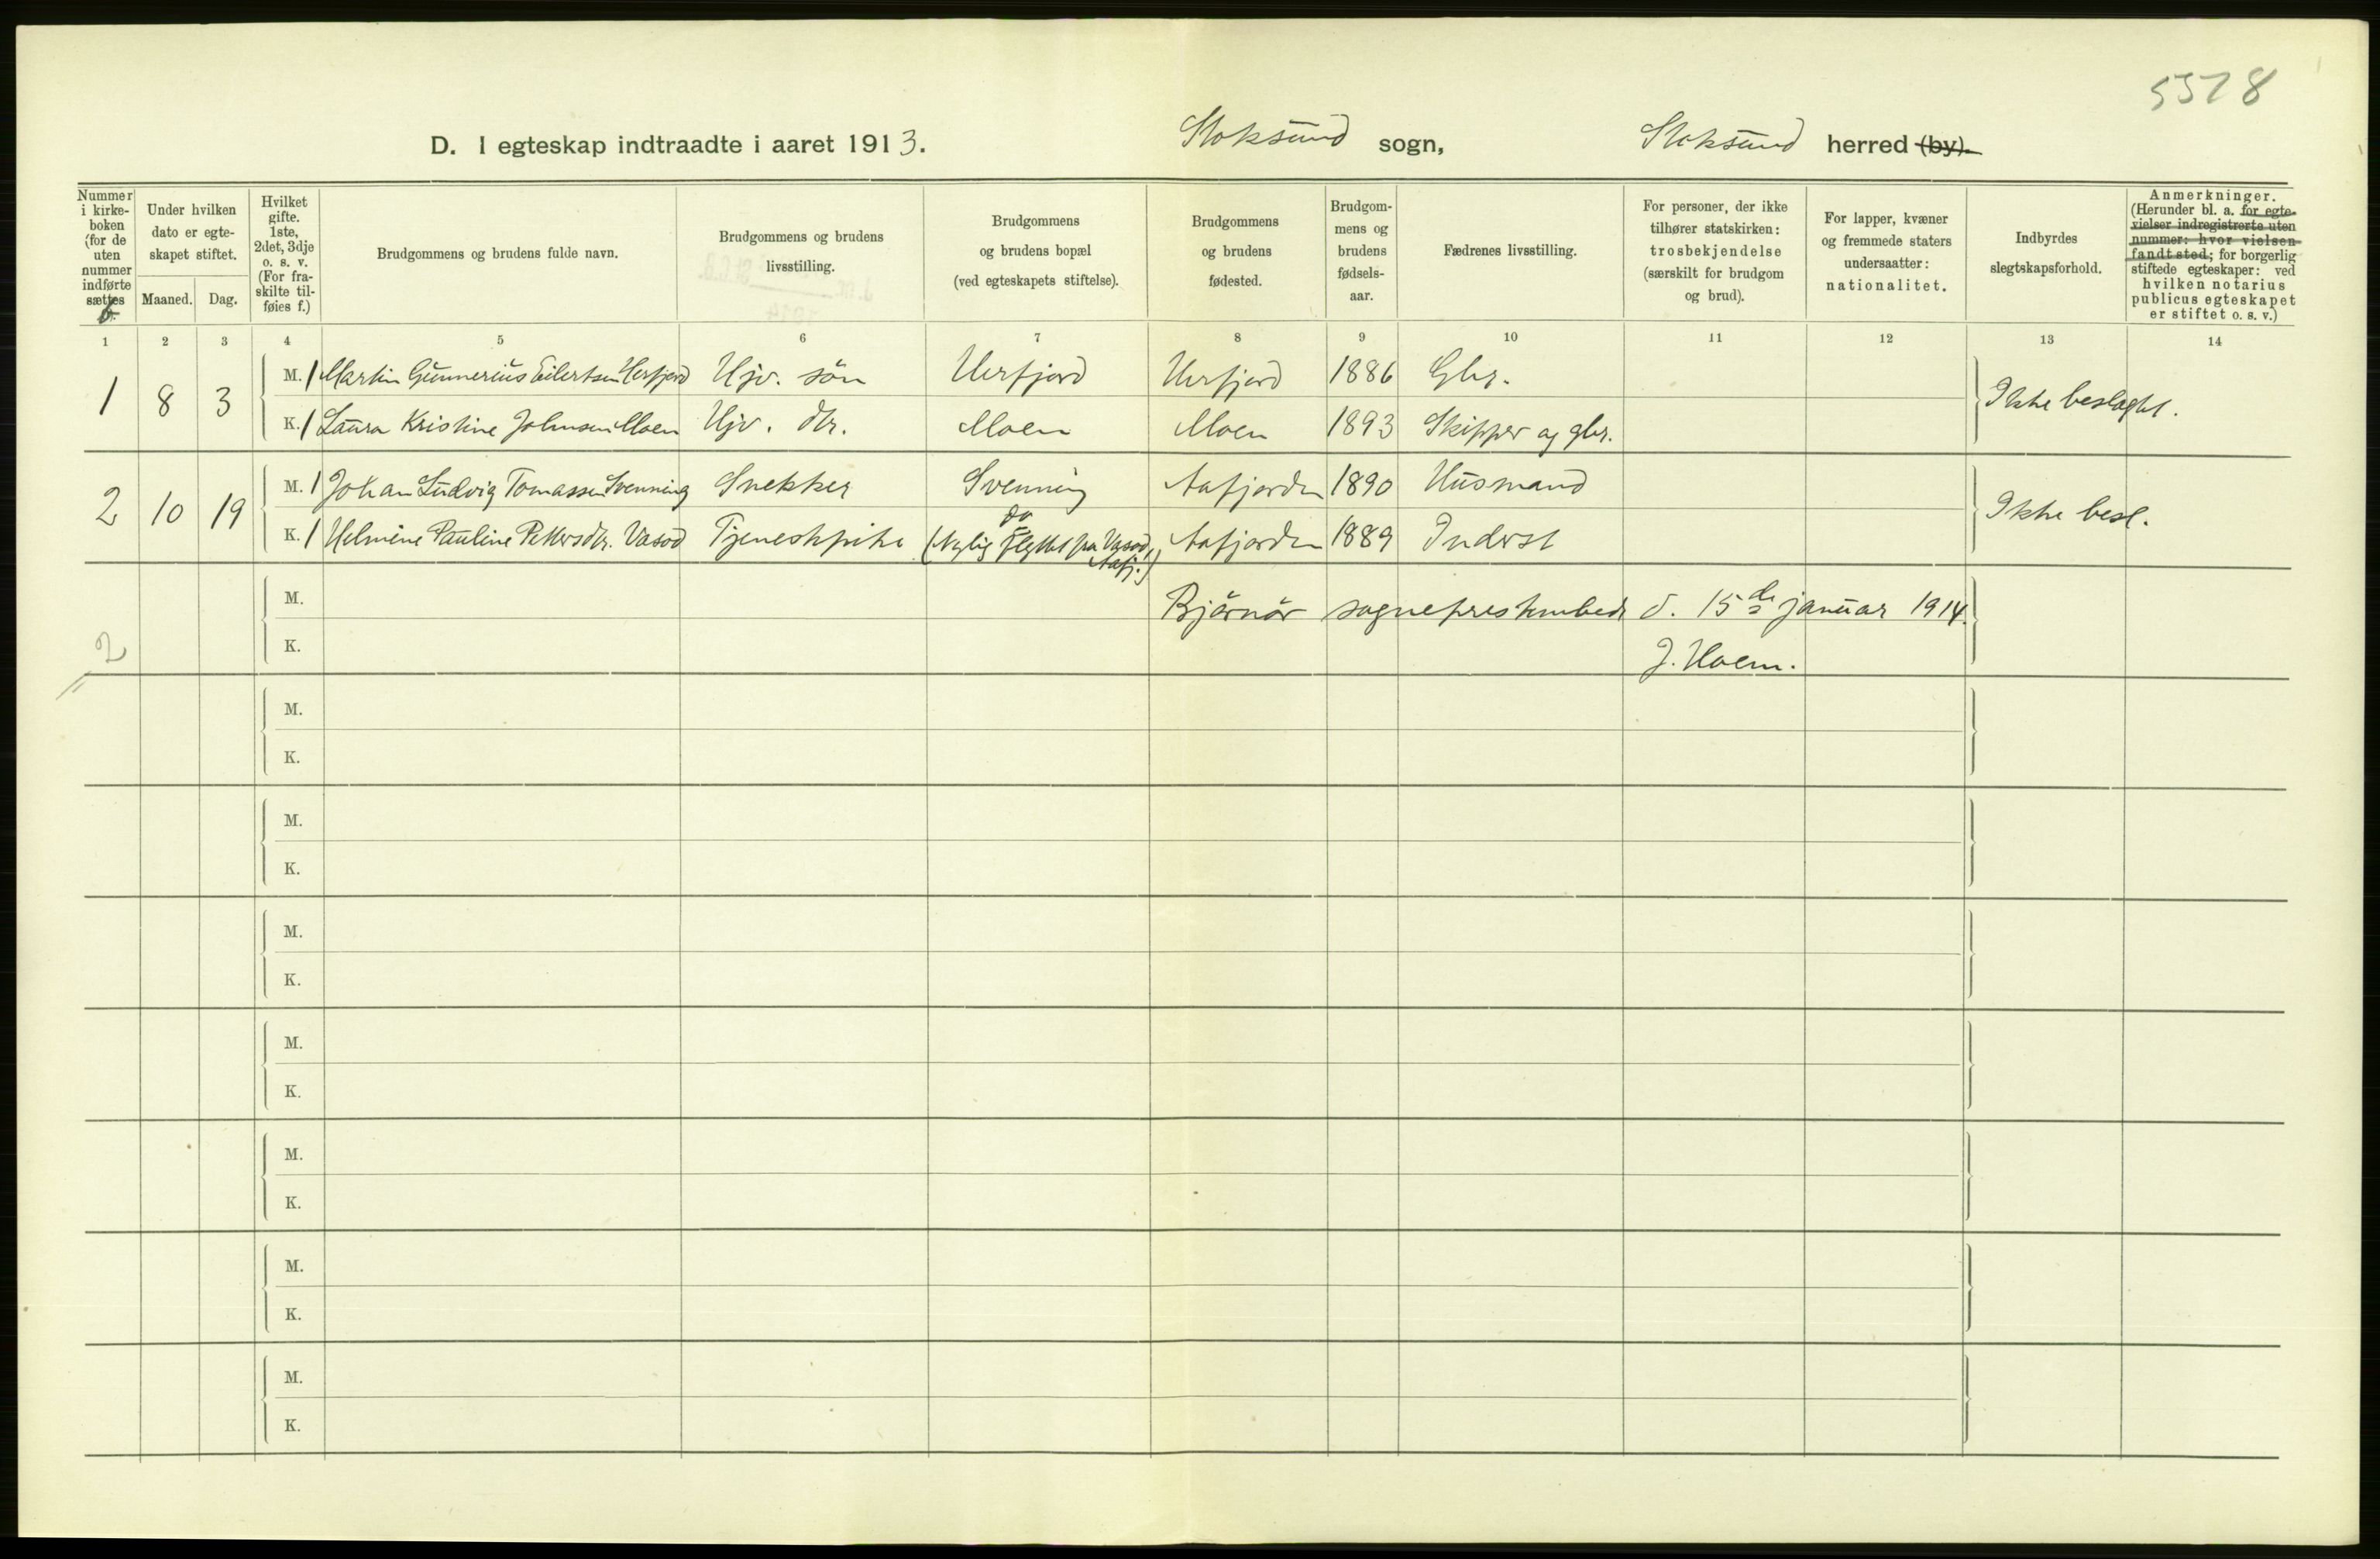 5578
D. I egteskap indtraadte i aaret 1913. Stoksund sogn, Stoksund herred (by).
Nummer i kirkeboken (for de uten nummer indførte sættes b.
Under hvilken dato er egteskapet stiftet.
Maaned. Dag.
Hvilket gifte. 1ste, 2det, 3dje o. s. v. (For fraskilte tilføies f.)
Brudgommens og brudens fulde navn.
Brudgommens og brudens livsstilling.
Brudgommens og brudens bopæl (ved egteskapets stiftelse).
Brudgommens og brudens fødested.
Brudgommens og brudens fødselsaar.
Fædrenes livsstilling.
For personer, der ikke tilhører statskirken: trosbekjendelse (særskilt for brudgom og brud).
For lapper, kvæner og fremmede staters undersaatter: nationalitet.
Indbyrdes slegtskapsforhold.
Anmerkninger. (Herunder bl. a. for egtevielser indregistrerte uten nummer: hvor vielsen fandt sted; for borgerlig stiftede egteskaper: ved hvilken notarius publicus egteskapet er stiftet o. s. v.)
1 2 3 4 5 6 7 8 9 10 11 12 13 14
1 8 3 M. 1 Martin Gunnerius Eilertsen Herfjord Hjv. sön Herfjord Herfjord 1886 Gbr. Ikke beslagtet.
K. 1 Laura Kristine Johnsen Moen Hjv. dtr. Moen Moen 1893 Skipper og gbr.
2 10 19 M. 1 Johan Ludvig Tomassen Svenning Snekker Svenning Aafjorden 1890 Husmand Ikke besl.
K. 1 Helmine Pauline Pettersdtr. Vasød Tjenestpike do (Nylig flyttet fra Vasød, Aafj.) Aafjorden 1889 Inderst
M. Bjørnör sogneprestembede d. 15de januar 1914.
2 K. J. Hoem.
M.
K.
M.
K.
M.
K.
M.
K.
M.
K.
M.
K.
M.
K.